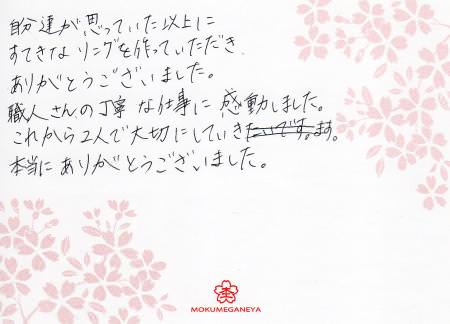 自分達が思っていた以上に
すてきなリングを作っていただき、
ありがとうございました。
職人さんの丁寧な仕事に感動しました。
これから2人で大切にしていきたいです。ます。
本当にありがとうございました。
MOKUMEGANEYA